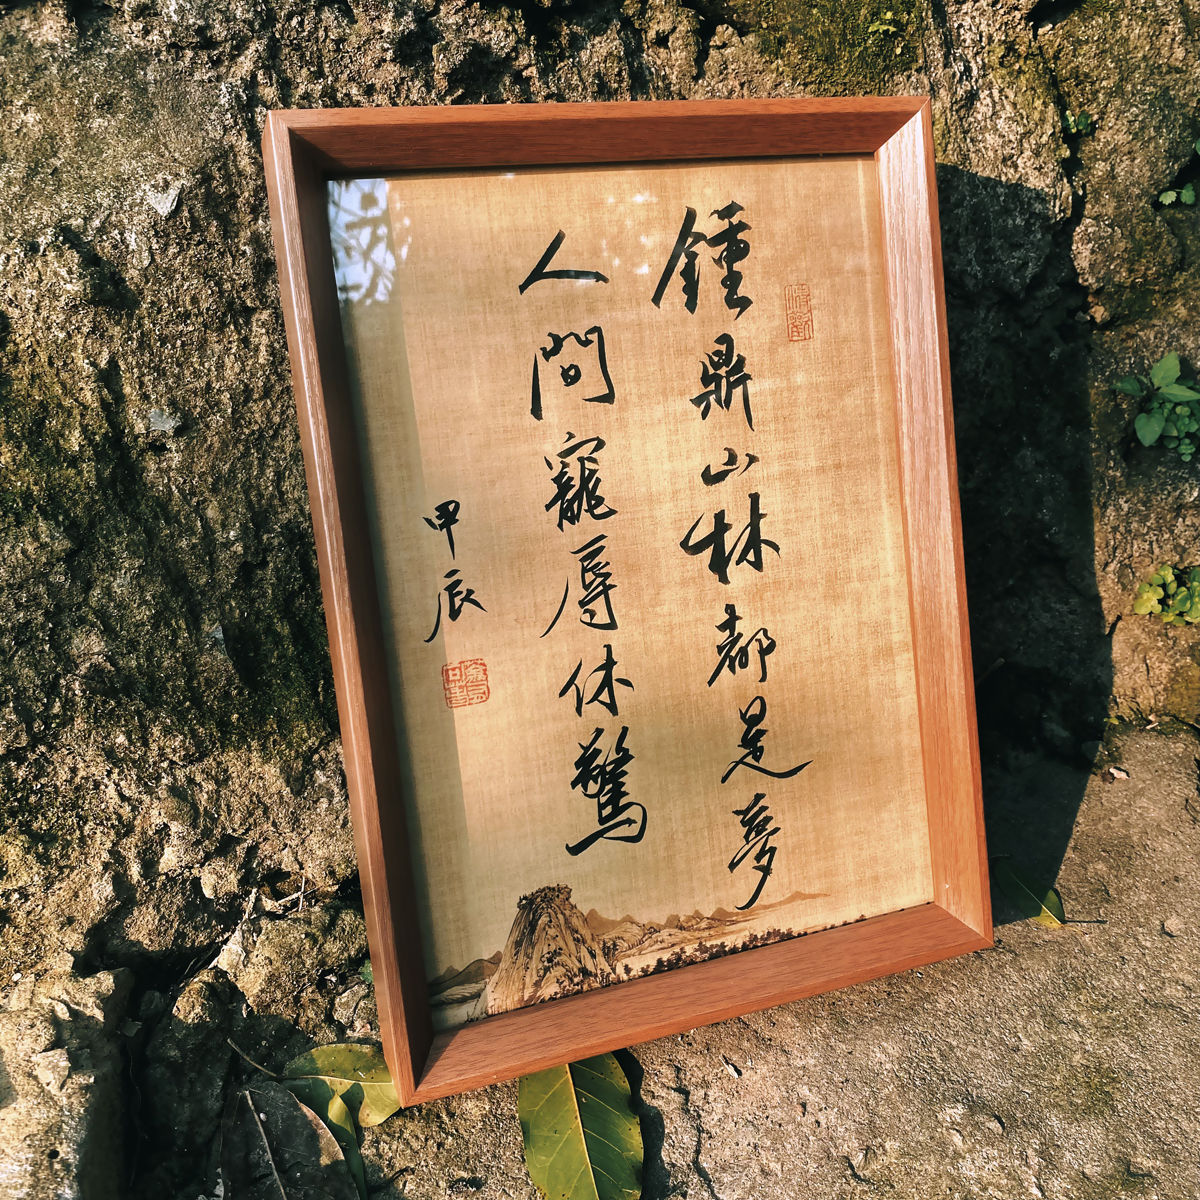 鍾鼎山林都是夢
人間寵辱休驚
甲辰